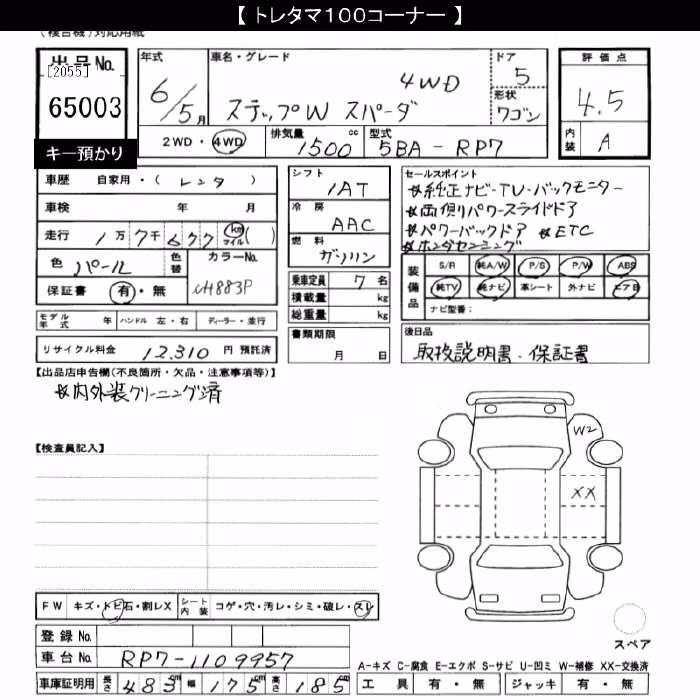 【 トレタマ100コーナー 】
(複合機)対応用紙
出品No.
[2055]
65003
キー預かり
年式
6/5月
車名・グレード
4WD
ステップW スパーダ
ドア
5
形状
ワゴン
評価点
4.5
内装
A
2WD・4WD
排気量
1500 cc
型式
5BA-RP7
車歴 自家用・( レンタ )
車検 年 月
走行 1万7千677 km マイル ( )
色 パール 色替 カラーNo.
保証書 有・無 NH883P
モデル年式 年 ハンドル 左・右 ディーラー・並行
リサイクル料金 12,310 円 預託済
シフト
IAT
冷房
AAC
燃料
ガソリン
乗車定員 7 名
積載量 kg
総重量 kg
書類期限
月 日
セールスポイント
※純正ナビ-TV-バックモニター
※両側パワースライドドア
※パワーバックドア ※ETC
※ホンダセンシング
装備品
S/R 純A/W P/S P/W ABS
純TV 純ナビ 革シート 外ナビ エアB
ナビ型番：
後日品
取扱説明書・保証書
【出品店申告欄(不良箇所・欠品・注意事項等)】
※内外装クリーニング済
【検査員記入】
W2
XX
FW キズ・トビ石・割レX シート内装 コゲ・穴・汚レ・シミ・破レ・スレ
スペア
登録No.
車台No. RP7-1109957
車庫証明用 長さ 483cm 幅 175cm 高さ 185cm
A-キズ C-腐食 E-エクボ S-サビ U-凹ミ W-補修 XX-交換済
工具 有・無 ジャッキ 有・無